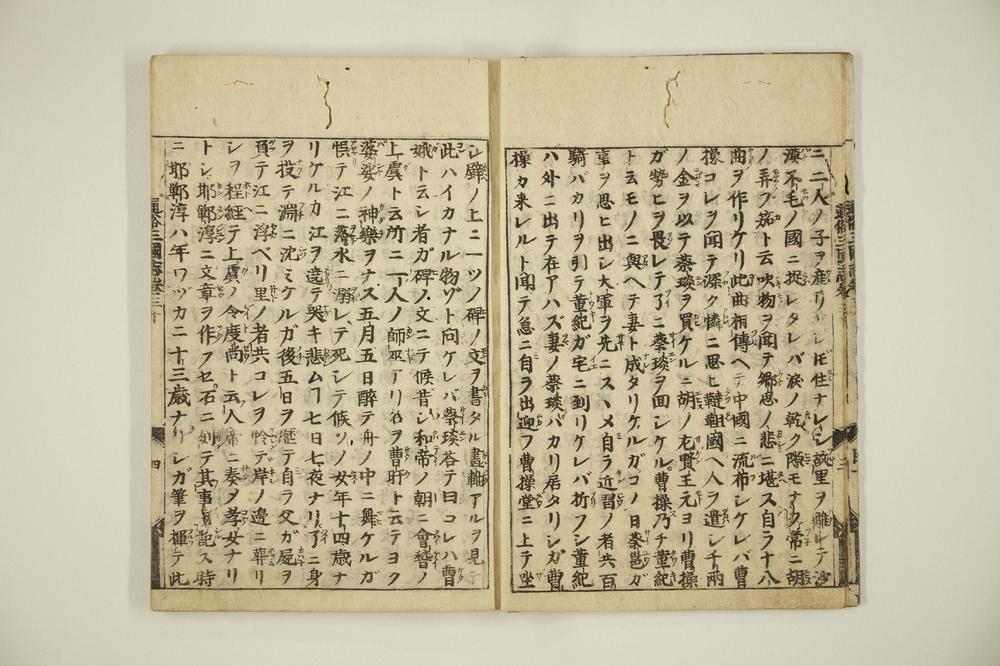 ニ二人ノ子ヲ産リサレ𪜈住ナレシ故里ヲ離レテ沙
漠不毛ノ國ニ捉レタレバ淚ノ乾ク隙モナク常ニ胡
ノ弄ブ笳ト云吹物ヲ聞テ郷思ノ悲ニ堪ス自ラ十八
曲ヲ作リケリ此曲相傳ヘテ中國ニ流布シケレバ曹
操コレヲ聞テ深ク憐ニ思ヒ韃靼國ヘ人ヲ遣シ千兩
ノ金ヲ以テ蔡琰ヲ買ケルニ胡ノ左賢王元ヨリ曹操
ガ勢ヒヲ畏レテ了ニ蔡琰ヲ回シケル曹操乃チ董紀
ト云モノニ與ヘテ妻ト成タリケルガコノ日蔡邕ガ
亊ヲ思ヒ出シ大軍ヲ先ニスヽメ自ラ近習ノ者共百
騎バカリヲ引テ董紀ガ宅ニ到リケレバ折フシ董紀
ハ外ニ出テ在アハズ妻ノ蔡琰バカリ居タリシガ曹
操カ来レルト聞テ急ニ自ラ出迎フ曹操堂ニ上テ坐
シ壁ノ上ニ一ツノ碑ノ文ヲ書タル畫軸アルヲ見テ
此ハイカナル物ゾト問ケレバ蔡琰荅テ曰コレハ曹
娥ト云シ者ガ碑ノ文ニテ候昔シ和帝ノ朝ニ會稽ノ
上虞ト云所ニ一人ノ師巫アリ名ヲ曹旴ト云テヨク
婆娑ノ神樂ヲナス五月五日醉テ舟ノ中ニ舞ケルガ
悞テ江ニ落水ニ溺レテ死シテ候ソノ女年十四歳ナ
リケルカ江ヲ遶テ哭キ悲ムヿ七日七夜ナリ了ニ身
ヲ投テ淵ニ沈ミケルガ後五日ヲ歷テ自ラ父ガ屍ヲ
負テ江ニ浮ベリ里ノ者共コレヲ怜テ岸ノ邊ニ葬リ
シヲ程經テ上虞ノ令度尚ト云人帝ニ奏タ孝女ナリ
トシ邯鄲淳ニ文章ヲ作ラセ石ニ刻テ其事ヲ記ス時
ニ邯鄲淳ハ年ワヅカニ十三歳ナリシガ筆ヲ揮テ此
通俗三國志卷三十
四